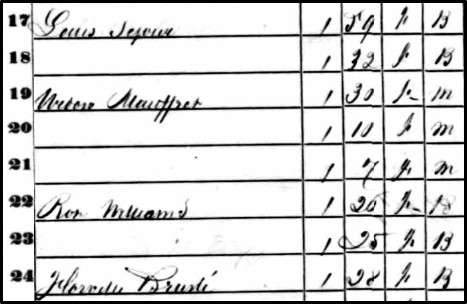 17 Louis 1 59 f B
18 1 32 f B
19 1 30 f m
20 1 10 f m
21 1 7 f m
22 Williams 1 26 f B
23 1 25 f B
24 1 28 f B